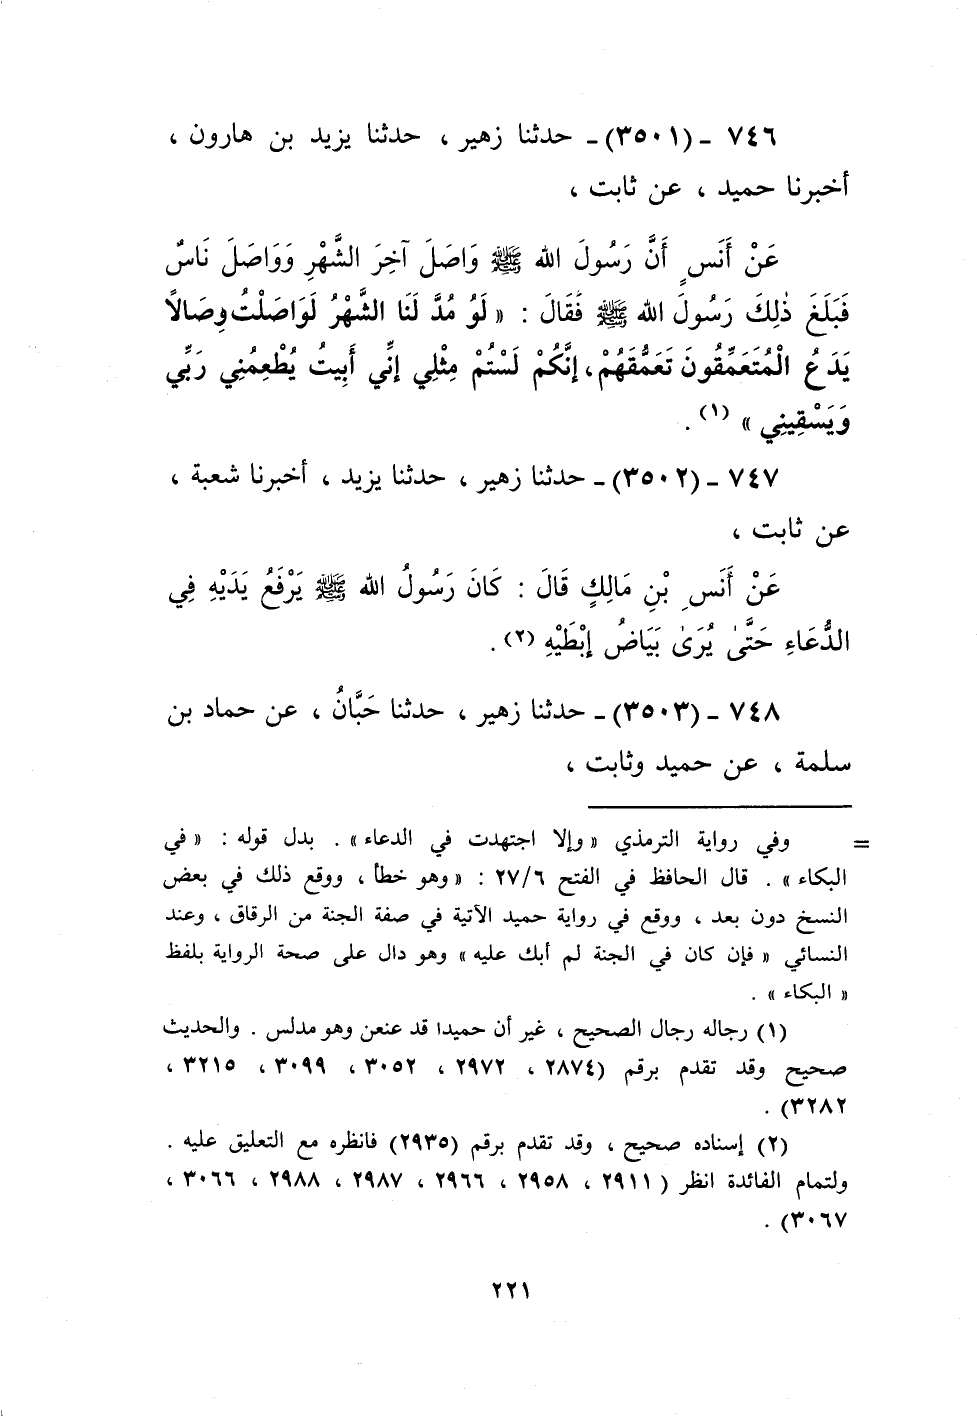 ٧٤٦ ـ (٣٥٠١) ـ حدثنا زهير ، حدثنا يزيد بن هارون ،
أخبرنا حميد ، عن ثابت ،
عَنْ أَنَسٍ أَنَّ رَسُولَ الله ﷺ وَاصَلَ آخِرَ الشَّهْرِ وَوَاصَلَ نَاسٌ
فَبَلَغَ ذٰلِكَ رَسُولَ الله ﷺ فَقَالَ : « لَوْ مُدَّ لَنَا الشَّهْرُ لَوَاصَلْتُ وِصَالاً
يَدَعُ الْمُتَعَمِّقُونَ تَعَمُّقَهُمْ، إِنَّكُمْ لَسْتُمْ مِثْلِي إِنِّي أَبِيتُ يُطْعِمُنِي رَبِّي
وَيَسْقِينِي » (١) .
٧٤٧ ـ (٣٥٠٢) ـ حدثنا زهير ، حدثنا يزيد ، أخبرنا شعبة ،
عن ثابت ،
عَنْ أَنَسِ بْنِ مَالِكٍ قَالَ : كَانَ رَسُولُ الله ﷺ يَرْفَعُ يَدَيْهِ فِي
الدُّعَاءِ حَتَّىٰ يُرَىٰ بَيَاضُ إِبْطَيْهِ (٢) .
٧٤٨ ـ (٣٥٠٣) ـ حدثنا زهير ، حدثنا حَبَّانُ ، عن حماد بن
سلمة ، عن حميد وثابت ،
= وفي رواية الترمذي « وإلا اجتهدت في الدعاء » . بدل قوله : « في
البكاء » . قال الحافظ في الفتح ٢٧/٦ : « وهو خطأ ، ووقع ذلك في بعض
النسخ دون بعد ، ووقع في رواية حميد الآتية في صفة الجنة من الرقاق ، وعند
النسائي « فإن كان في الجنة لم أبك عليه » وهو دال على صحة الرواية بلفظ
« البكاء » .
(١) رجاله رجال الصحيح ، غير أن حميدا قد عنعن وهو مدلس . والحديث
صحيح وقد تقدم برقم (٢٨٧٤ ، ٢٩٧٢ ، ٣٠٥٢ ، ٣٠٩٩ ، ٣٢١٥ ،
٣٢٨٢) .
(٢) إسناده صحيح ، وقد تقدم برقم (٢٩٣٥) فانظره مع التعليق عليه .
ولتمام الفائدة انظر ( ٢٩١١ ، ٢٩٥٨ ، ٢٩٦٦ ، ٢٩٨٧ ، ٢٩٨٨ ، ٣٠٦٦ ،
٣٠٦٧) .
٢٢١